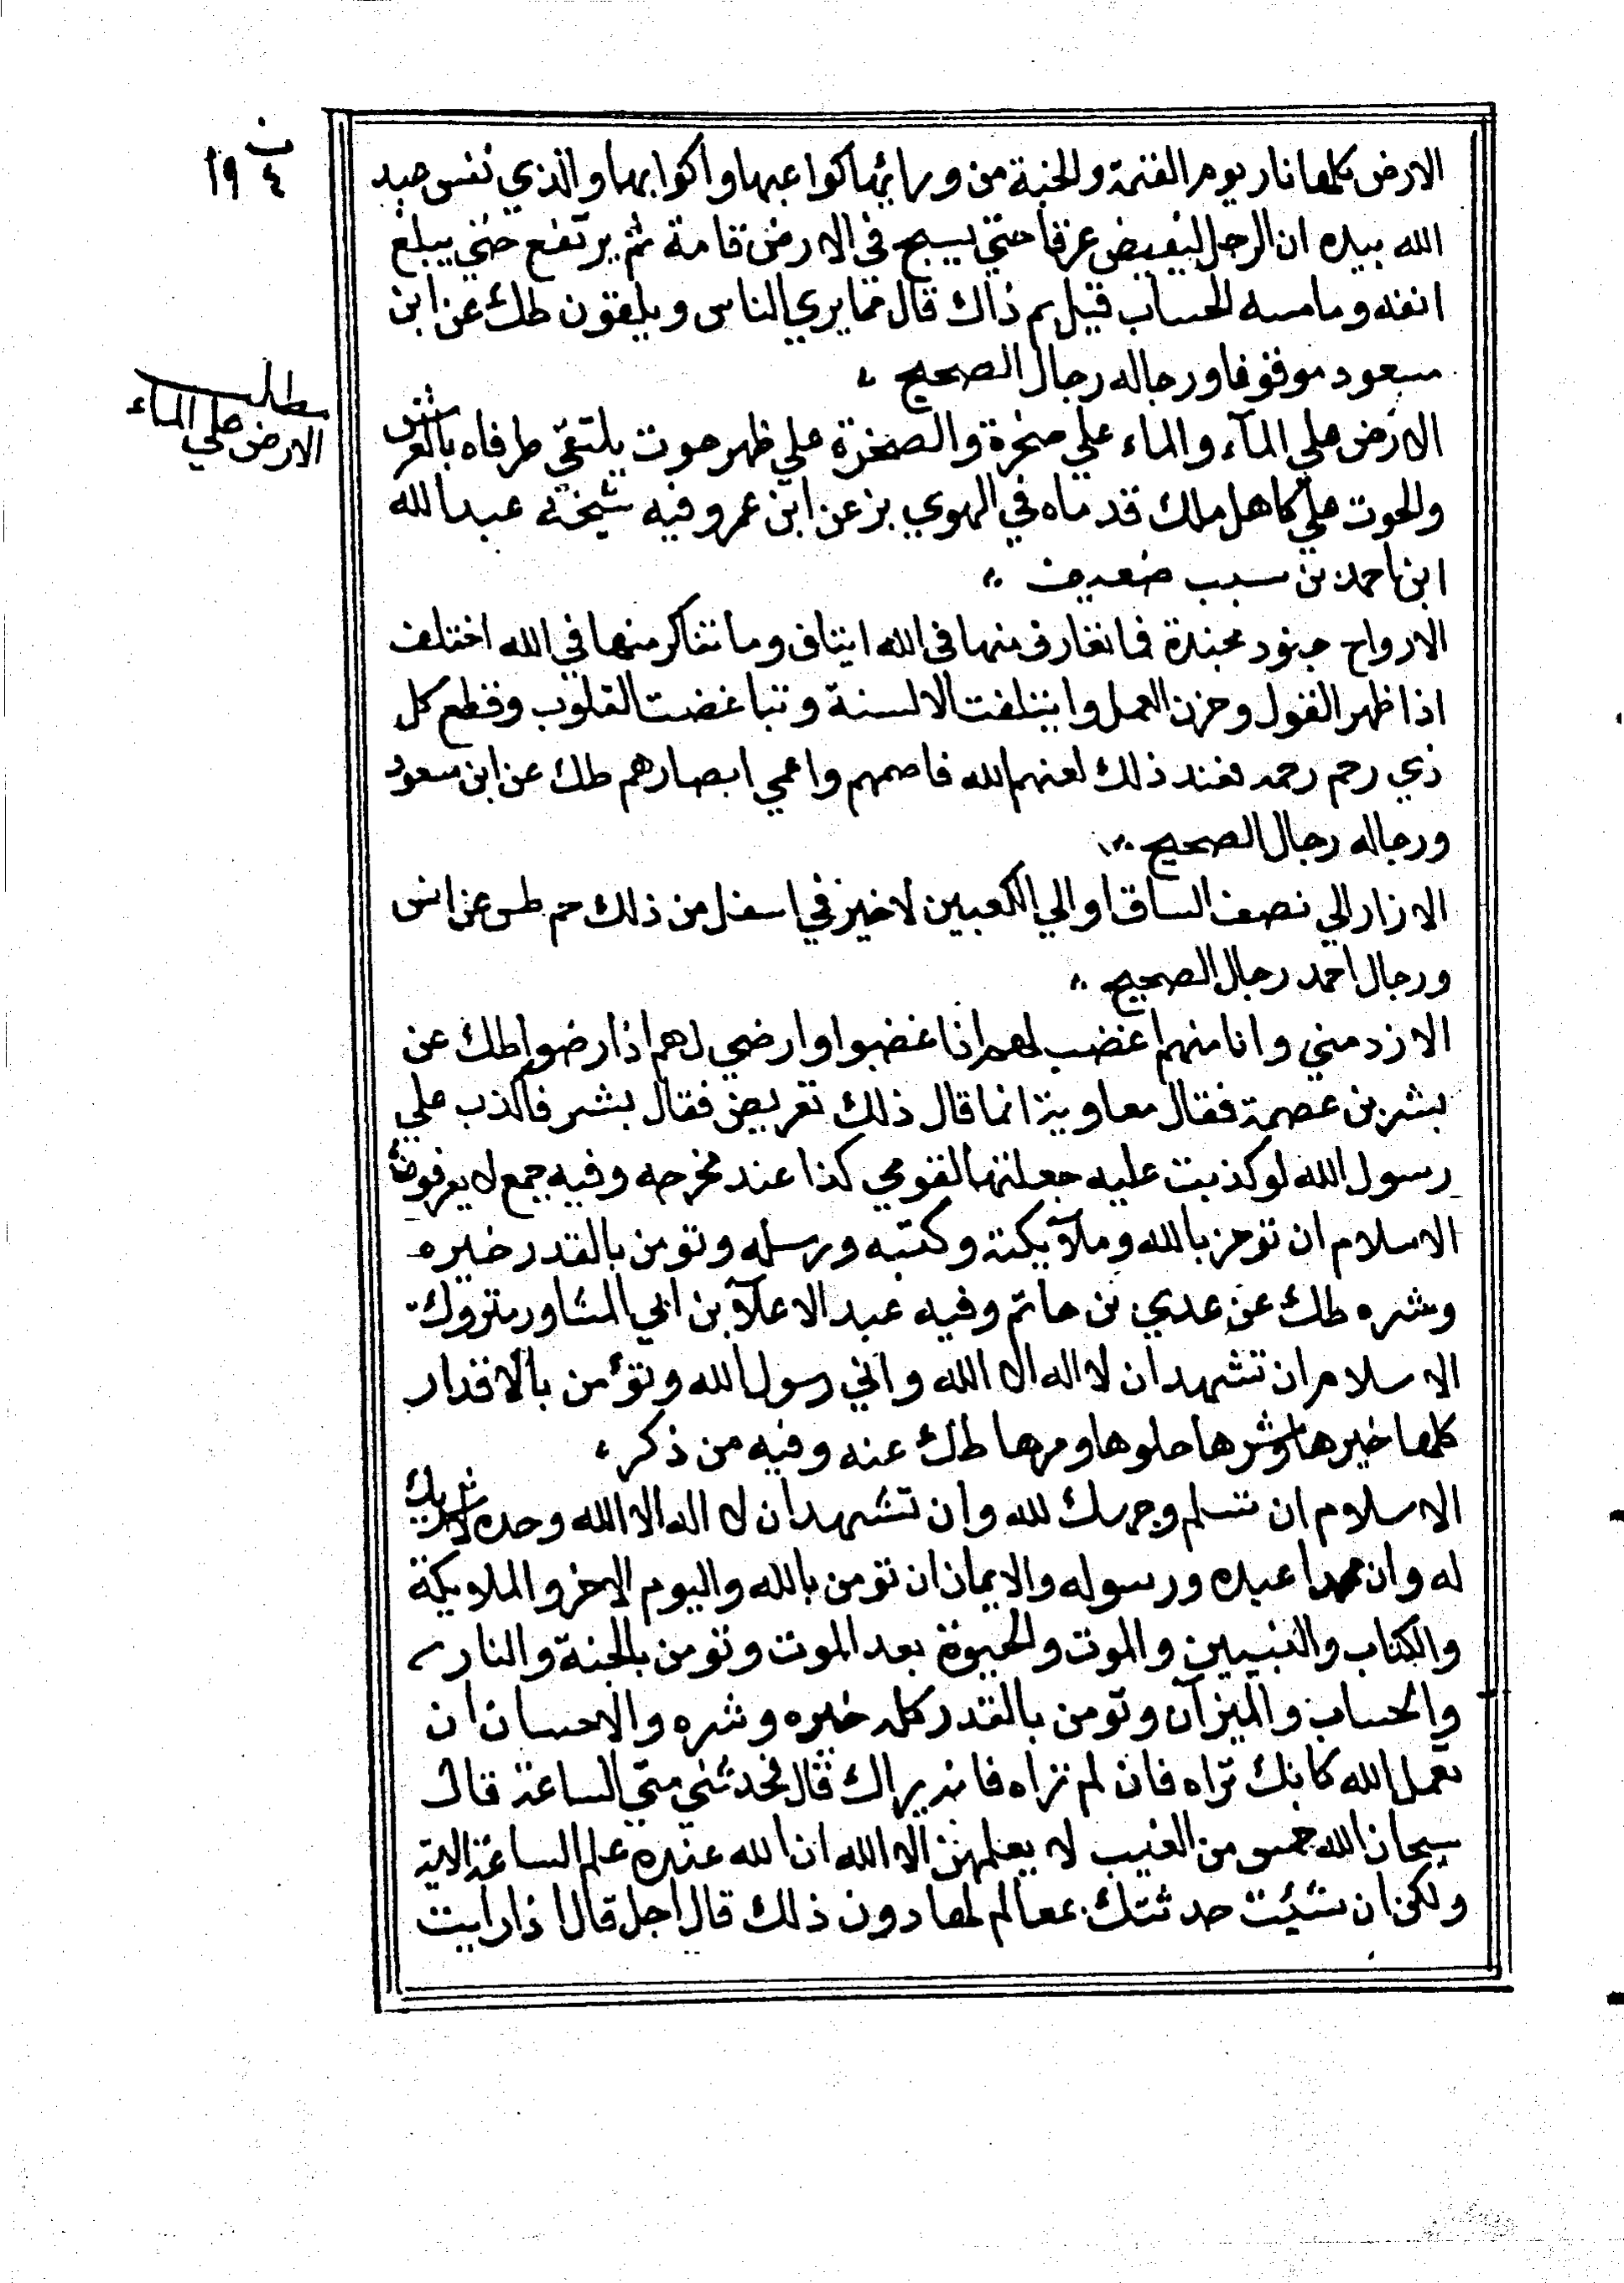 ١٩ ٤
الارض كلها نار يوم القيمة والجنة من ورائها كواعبها واكوابها والذي نفس عبد
الله بيده ان الرجل ليفيض عرقا حتي يسيح في الارض قامة ثم يرتفع حتي يبلغ
انفه وما مسه الحساب قيل بم ذاك قال مما يري الناس ويلقون طك عن ابن
مسعود موقوفا ورجاله رجال الصحيح
مطلب
الارض علي الماء
الارض علي المآء والماء علي صخرة والصخرة علي ظهر حوت يلتقي طرفاه بالعرش
والحوت علي كاهل ملك قدماه في الهوي بز عن ابن عمر وفيه شيخه عبد الله
ابن احمد بن سبب ضعيف
الارواح جنود مجندة فما تعارف منها في الله ايتلف وما تناكر منها في الله اختلف
اذا ظهر القول وخزن العمل وايتلفت الالسنة وتباغضت القلوب وقطع كل
ذي رحم رحمه فعند ذلك لعنهم الله فاصمهم واعمي ابصارهم طك عن ابن مسعود
ورجاله رجال الصحيح
الازار الي نصف الساق او الي الكعبين لا خير في اسفل من ذلك حم طس عن انس
ورجال احمد رجال الصحيح
الازد مني وانا منهم اغضب لهم اذا غضبوا وارضي لهم اذا رضوا طك عن
بشر بن عصمة فقال معاوية انما قال ذلك تعريض فقال بشر فاكذب علي
رسول الله لو كذبت عليه جعلتها لقومي كذا عند مخرجه وفيه جمع لا يعرفون
الاسلام ان تومن بالله وملآيكته وكتبه ورسله وتومن بالقدر خيره
وشره طك عن عدي بن حاتم وفيه عبد الاعلآ بن ابي المساور متروك
الاسلام ان تشهد ان لا اله الا الله واني رسول الله وتؤمن بالاقدار
كلها خيرها وشرها حلوها ومرها طك عنه وفيه من ذكر
الاسلام ان تسلم وجهك لله وان تشهد ان لا اله الا الله وحده لا شريك
له وان محمدا عبده ورسوله والايمان ان تومن بالله واليوم الاخر والملايكة
والكتاب والنبيين والموت والحيوة بعد الموت وتومن بالجنة والنار
والحساب والميزان وتومن بالقدر كله خيره وشره والاحسان ان
تعمل لله كانك تراه فان لم تراه فانه يراك قال فحدثني متي الساعة قال
سبحان الله خمس من الغيب لا يعلمهن الا الله ان الله عنده علم الساعة الاية
ولكن ان شئت حدثتك بمعالم لها دون ذلك قال اجل قال اذا رايت